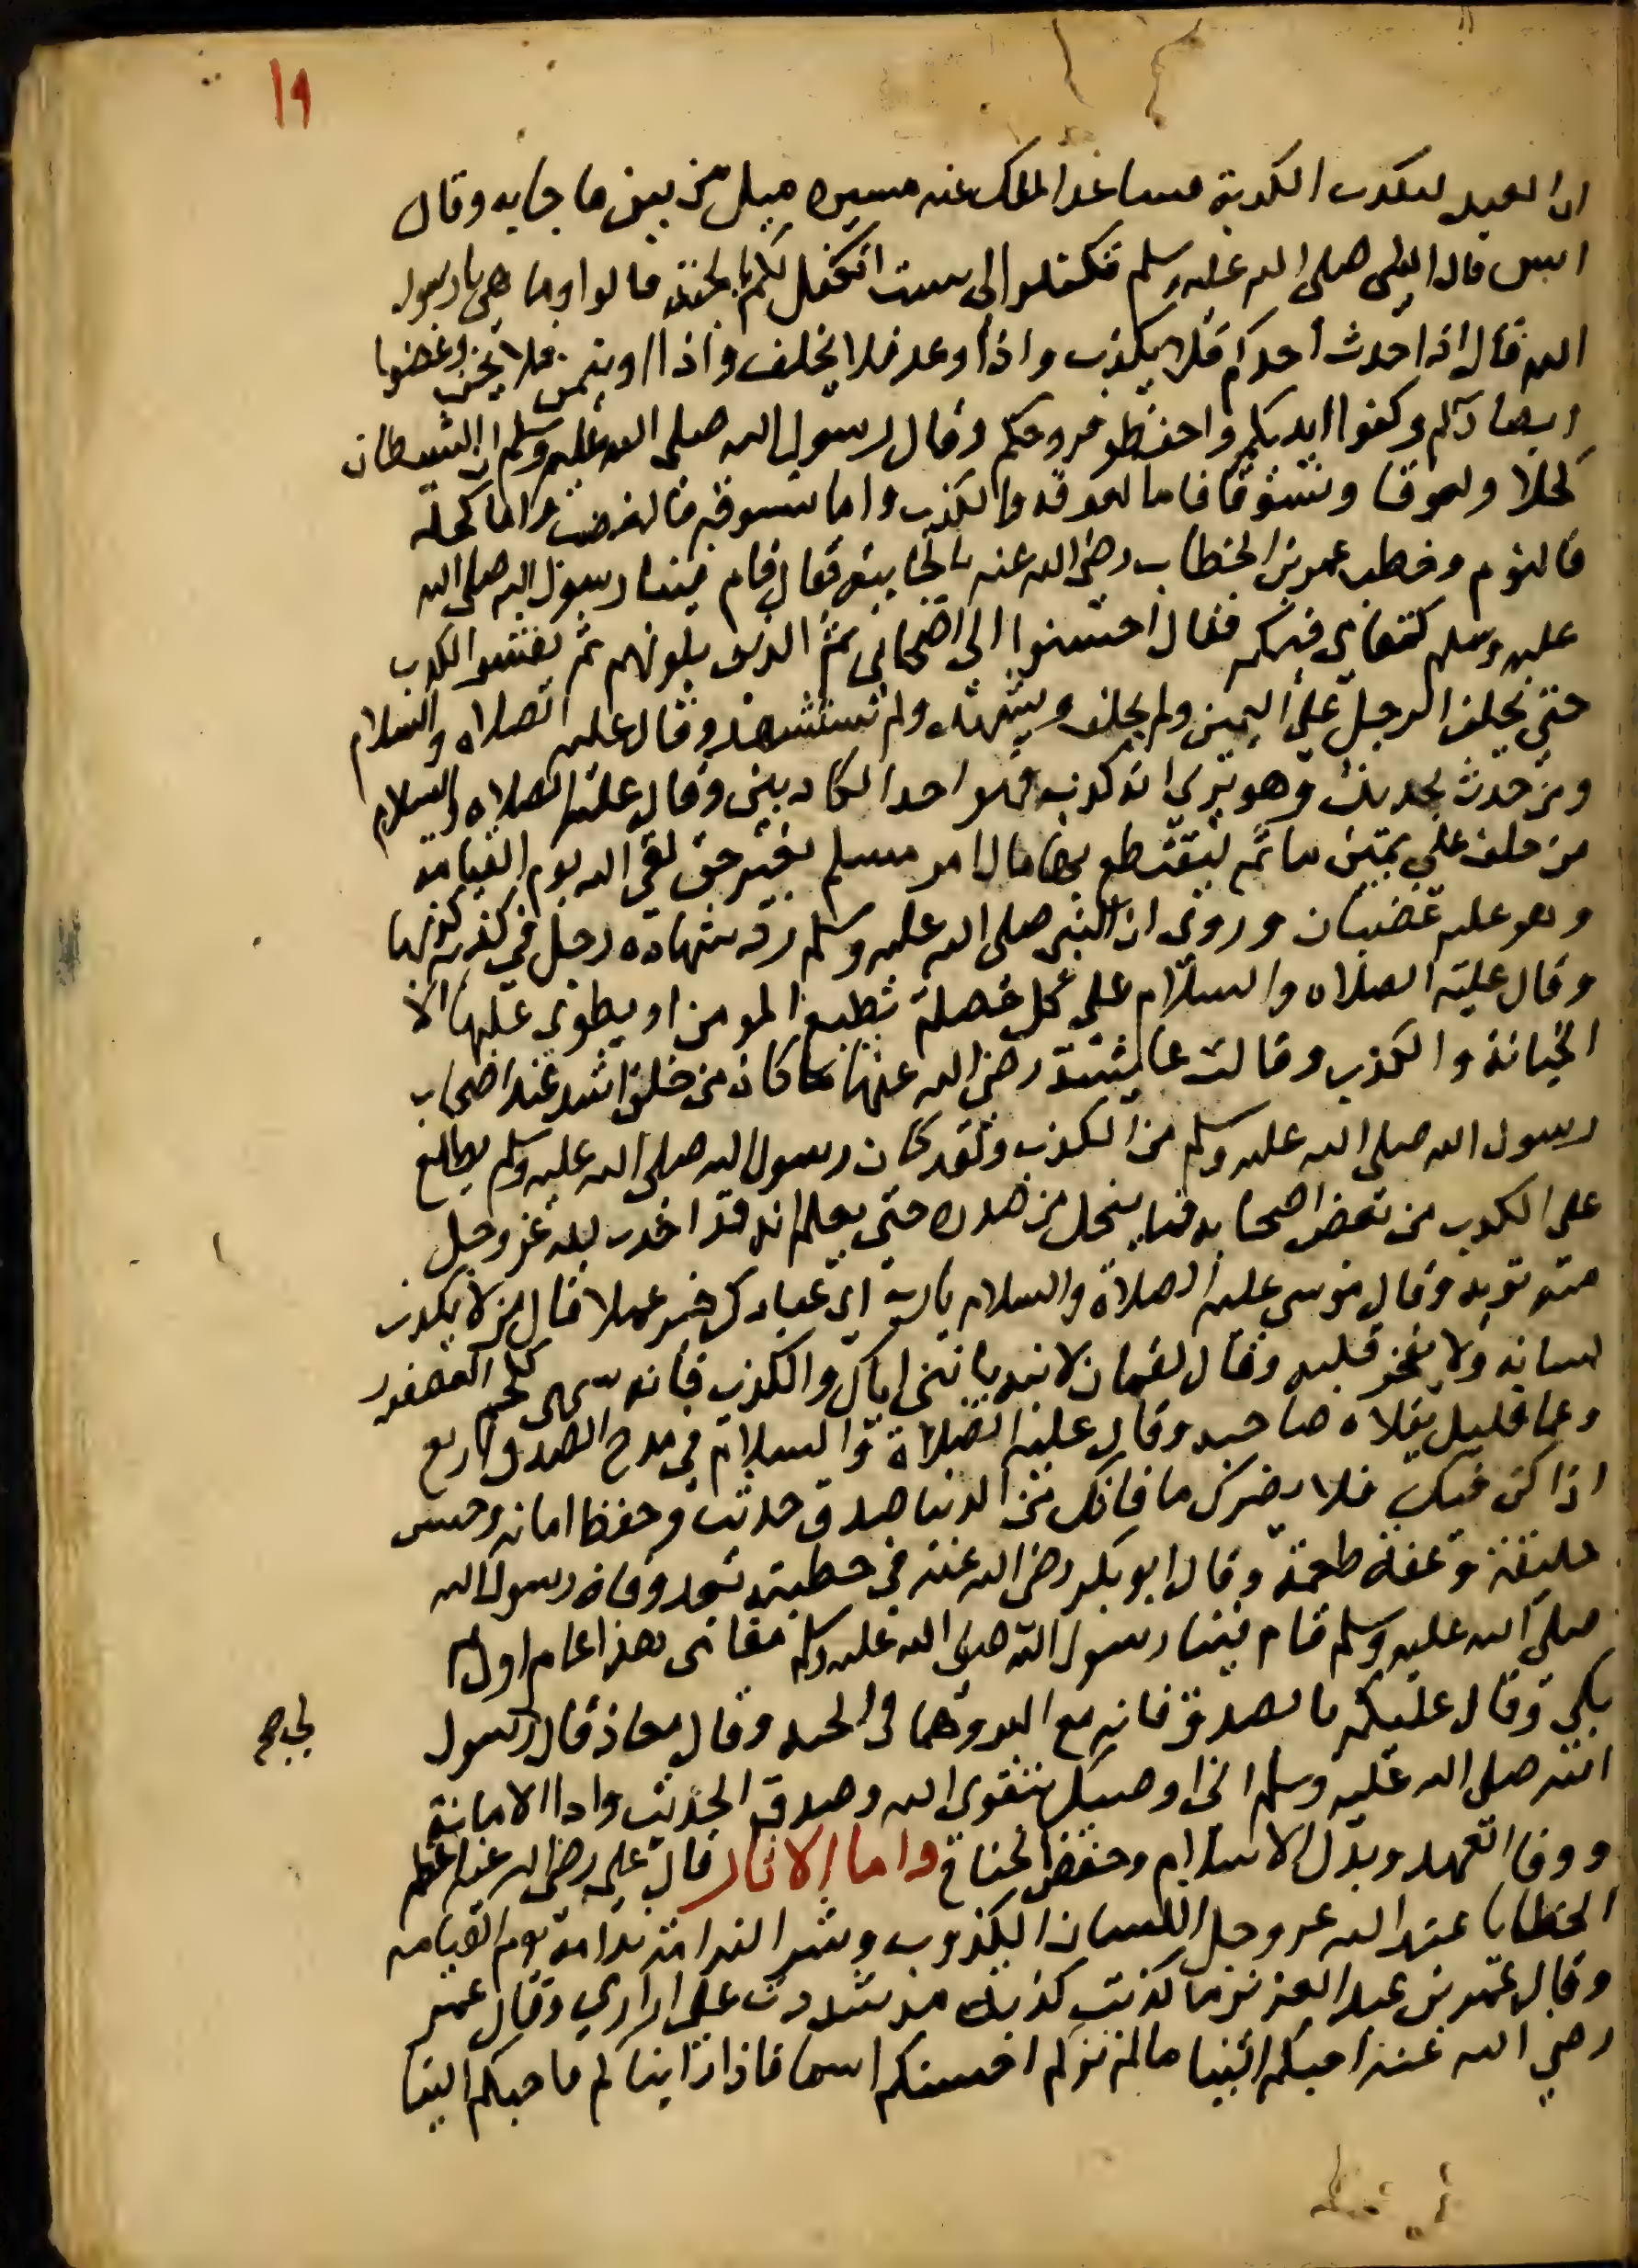 ١٩
ان العبد ليكذب الكذبة فيتباعد الملك عنه مسيرة ميل من نتن ما جا به وقال
انس قال النبى صلى الله عليه وسلم تكفلوا الى بست اتكفل لكم بالجنة قالوا وما هى يا رسول
الله قال اذا حدث احدكم فلا يكذب واذا وعد فلا يخلف واذا اوتمن فلا يخن وغضوا
ابصاركم وكفوا ايديكم واحفظو فروجكم وقال رسول الله صلى الله عليه وسلم ان للشيطان
كحلا ولعوقا ونشوقا فاما لعوقه فالكذب واما نشوقه فالغضب واما كحله
فالنوم وخطب عمر بن الخطاب رضى الله عنه بالجابية فقال قام فينا رسول الله صلى الله
عليه وسلم كمقامى فيكم فقال احسنوا الى اصحابى ثم الذين يلونهم ثم يفشوا الكذب
حتى يحلف الرجل على اليمين ولم يحلف ويشهد ولم يستشهد وقال عليه الصلاه والسلام
ومن حدث بحديث وهو يرى انه كذب فهو احد الكاذبين وقال عليه الصلاه والسلام
من حلف على يمين باثم ليقتطع بها مال امر مسلم بغير حق لقى الله يوم القيامة
وهو عليه غضبان وروى ان النبى صلى الله عليه وسلم رد شهاده رجل فى كذبة كذبها
وقال عليه الصلاه والسلام على كل خصلة يطبع المومن او يطوى عليها الا
الخيانة والكذب وقالت عايشة رضى الله عنها ما كان من خلق اشد عند اصحاب
رسول الله صلى الله عليه وسلم من الكذب ولقد كان رسول الله صلى الله عليه وسلم يطلع
على الكذب من بعض اصحابه فما ينحل من صدره حتى يعلم انه قد احدث لله عز وجل
منه توبه وقال موسى عليه الصلاة والسلام يا رب اى عبادك خير عملا قال من لا يكذب
لسانه ولا يفجر قلبه وقال لقمان لابنه يا بنى اياك والكذب فانه شهى كلحم العصفور
وعما قليل يقلاه صاحبه وقال عليه الصلاة والسلام فى مدح الصدق اربع
اذا كن فيك فلا يضرك ما فاتك من الدنيا صدق حديث وحفظ امانه وحسن
خليقة وعفة طعمة وقال ابو بكر رضى الله عنه فى خطبته بعد وفاة رسول الله
صلى الله عليه وسلم قام فينا رسول الله صلى الله عليه وسلم مقامى هذا عام اول ثم
بكى وقال عليكم بالصدق فانه مع البر وهما فى الجنه وقال معاذ قال رسول
الله صلى الله عليه وسلم انى اوصيك بتقوى الله وصدق الحديث وادا الامانة
ووفا العهد وبذل السلام وخفض الجناح واما الاثار قال على رضى الله عنه اعظم
الخطايا عند الله عز وجل اللسان الكذوب وشر الندامة ندامة يوم القيامه
وقال عمر بن عبد العزيز ما كذبت كذبة مذ شددت على ازارى وقال عمر
رضى الله عنه احبكم الينا ما لم نركم احسنكم اسما فاذا راينا كم فاحبكم الينا